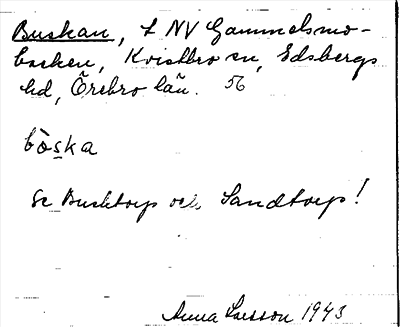 Buskan, t NV Gammelsmo-
backen, Kvistbro sn, Edsbergs
hd, Örebro län. 56
bòska
Se Busktorp och Sandtorp!
Anna Larsson 1943